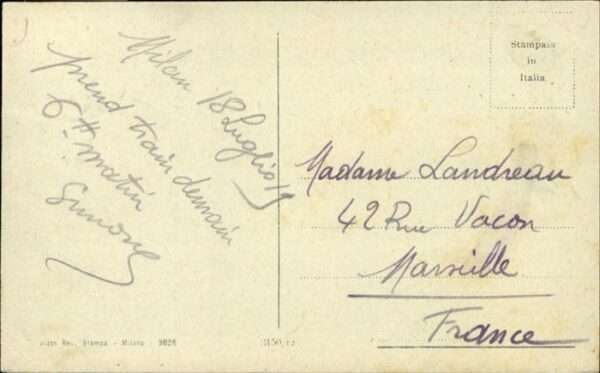 Milan 18 Luglio 19
prend train demain
6 H matin
Simone
Stampata
in
Italia
Madame Landreau
42 Rue Vacon
Marseille
France
Stampa - Milano - 9026